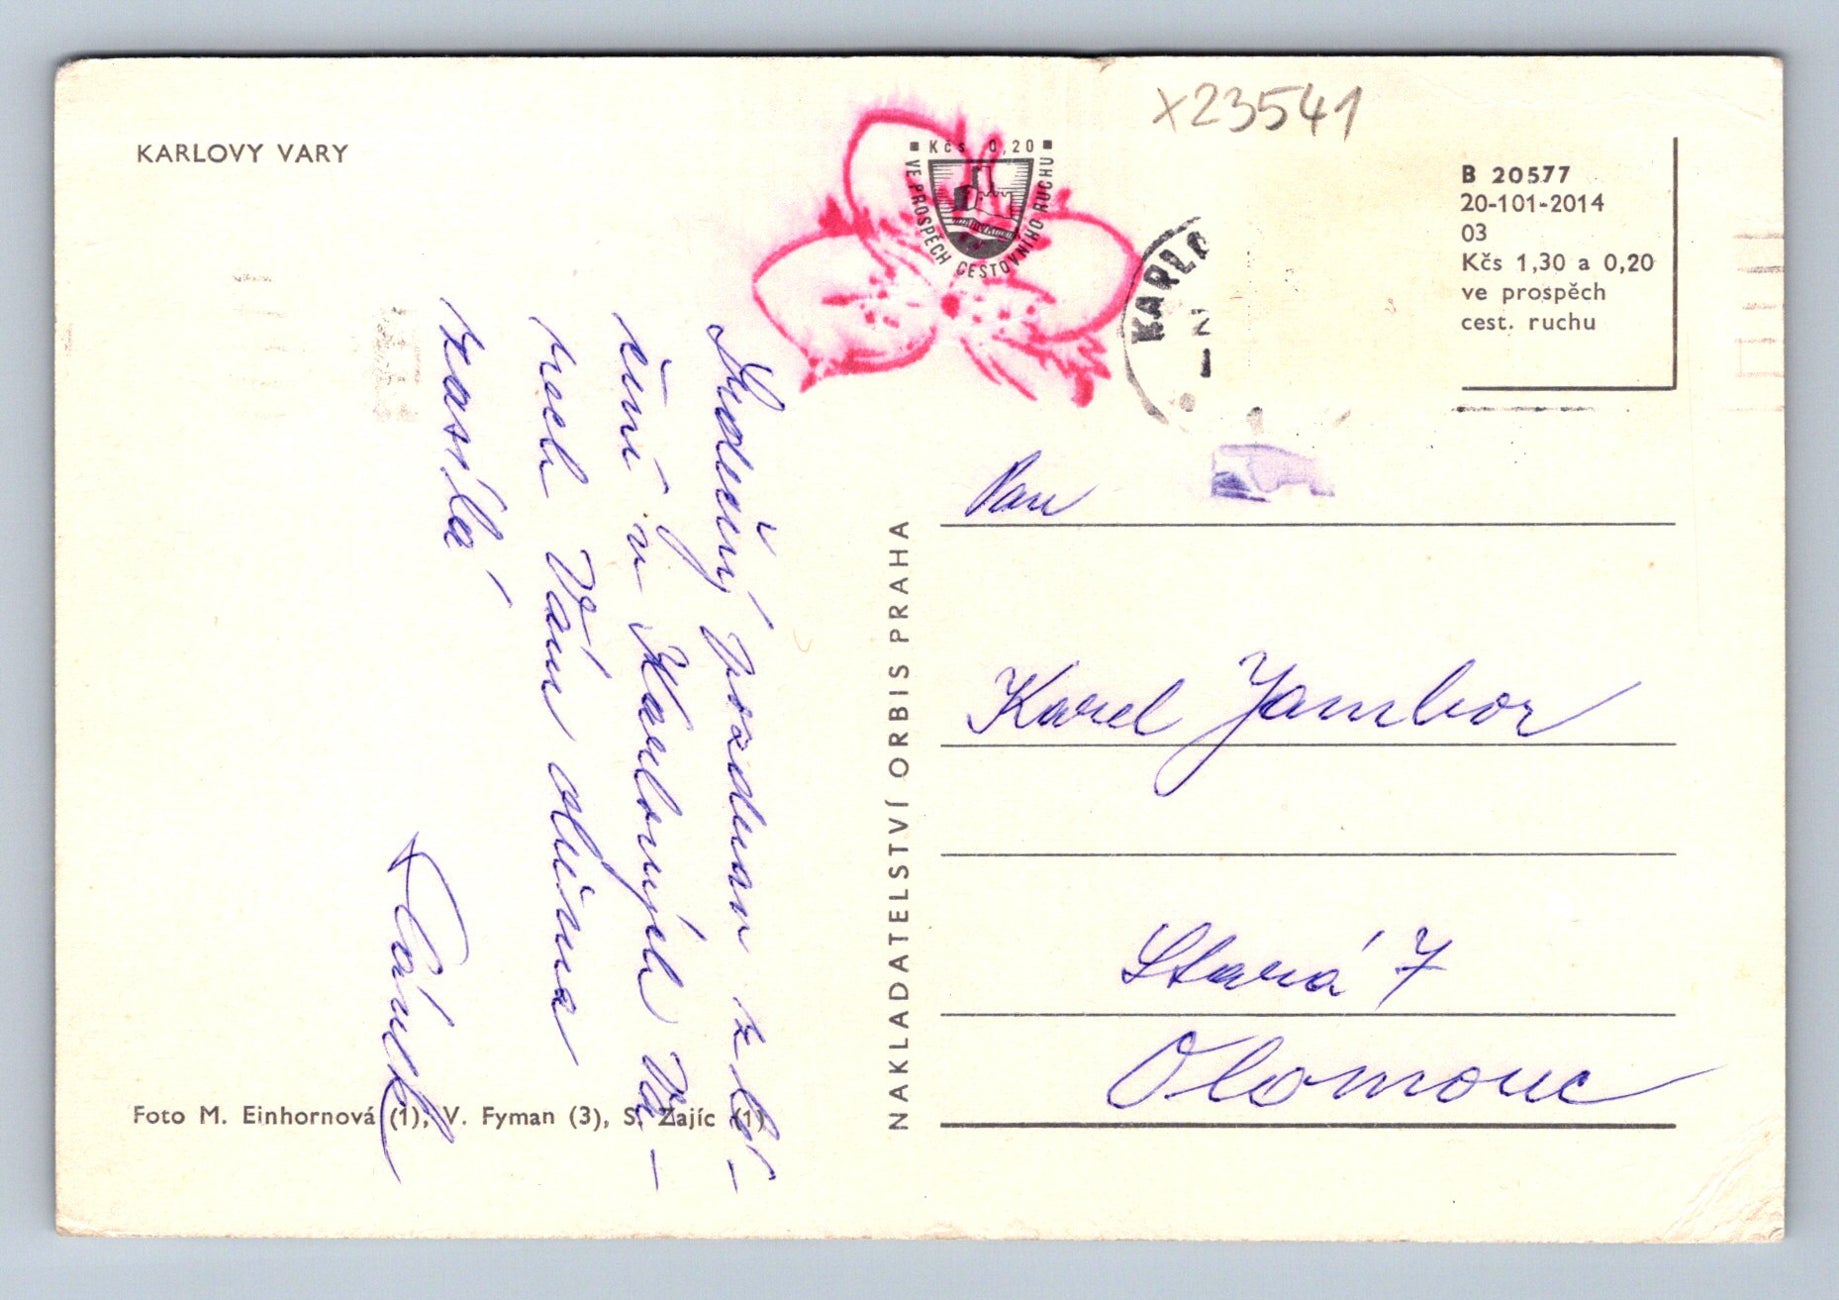 KARLOVY VARY
Kčs 0,20
VE PROSPĚCH CESTOVNÍHO RUCHU
x23541
B 20577
20-101-2014
03
Kčs 1,30 a 0,20
ve prospěch
cest. ruchu
KARLO
Srdečný pozdrav z lé-
čení v Karlových Va-
rech Vám všema
zasílá
NAKLADATELSTVÍ ORBIS PRAHA
Pan
Karel Jambor
Stará 7
Olomouc
Foto M. Einhornová (1), V. Fyman (3), S. Zajíc (1)